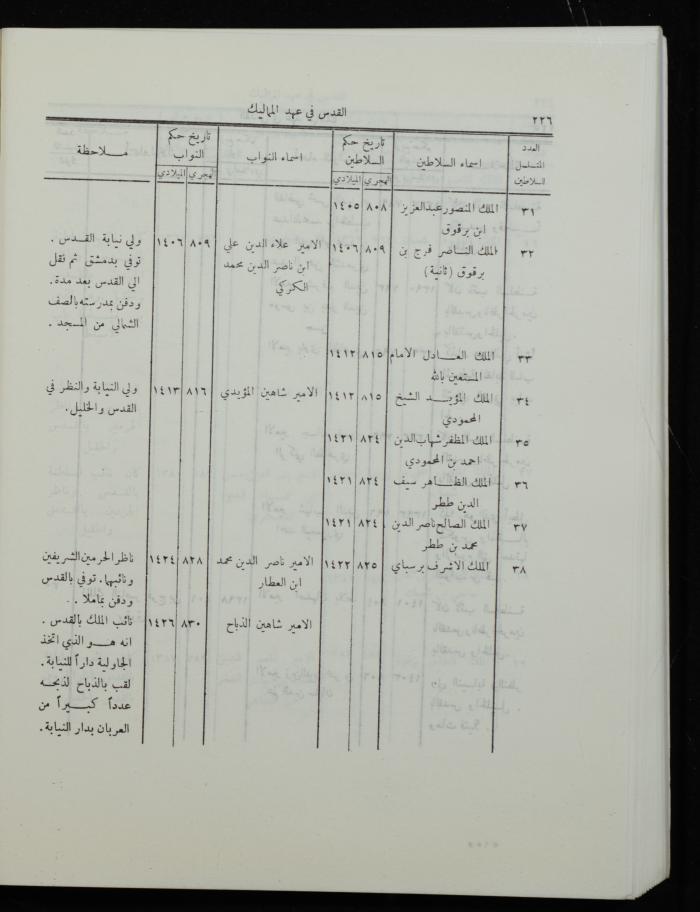 ٢٢٦
القدس في عهد المماليك
العدد المتسلسل للسلاطين | اسماء السلاطين | تاريخ حكم السلاطين | اسماء النواب | تاريخ حكم النواب | ملاحظة
الهجري | الميلادي | الهجري | الميلادي
٣١ الملك المنصور عبدالعزيز ٨٠٨ ١٤٠٥
ابن برقوق
٣٢ الملك الناصر فرج بن ٨٠٩ ١٤٠٦ الامير علاء الدين علي ٨٠٩ ١٤٠٦ ولي نيابة القدس .
برقوق (ثانية) ابن ناصر الدين محمد توفي بدمشق ثم نقل
الكركي الى القدس بعد مدة .
ودفن بمدرسته بالصف
الشمالي من المسجد .
٣٣ الملك العادل الامام ٨١٥ ١٤١٢
المستعين بالله
٣٤ الملك المؤيد الشيخ ٨١٥ ١٤١٢ الامير شاهين المؤيدي ٨١٦ ١٤١٣ ولي النيابة والنظر في
المحمودي القدس والخليل.
٣٥ الملك المظفر شهاب الدين ٨٢٤ ١٤٢١
احمد بن المحمودي
٣٦ الملك الظاهر سيف ٨٢٤ ١٤٢١
الدين ططر
٣٧ الملك الصالح ناصر الدين ٨٢٤ ١٤٢١
محمد بن ططر
٣٨ الملك الاشرف برسباي ٨٢٥ ١٤٢٢ الامير ناصر الدين محمد ٨٢٨ ١٤٢٤ ناظر الحرمين الشريفين
ابن العطار ونائبهما. توفي بالقدس
ودفن بماملا . .
الامير شاهين الذباح ٨٣٠ ١٤٢٦ نائب الملك بالقدس .
انه هو الذي اتخذ
الجاولية داراً للنيابة .
لقب بالذباح لذبحه
عدداً كبيراً من
العربان بدار النيابة .